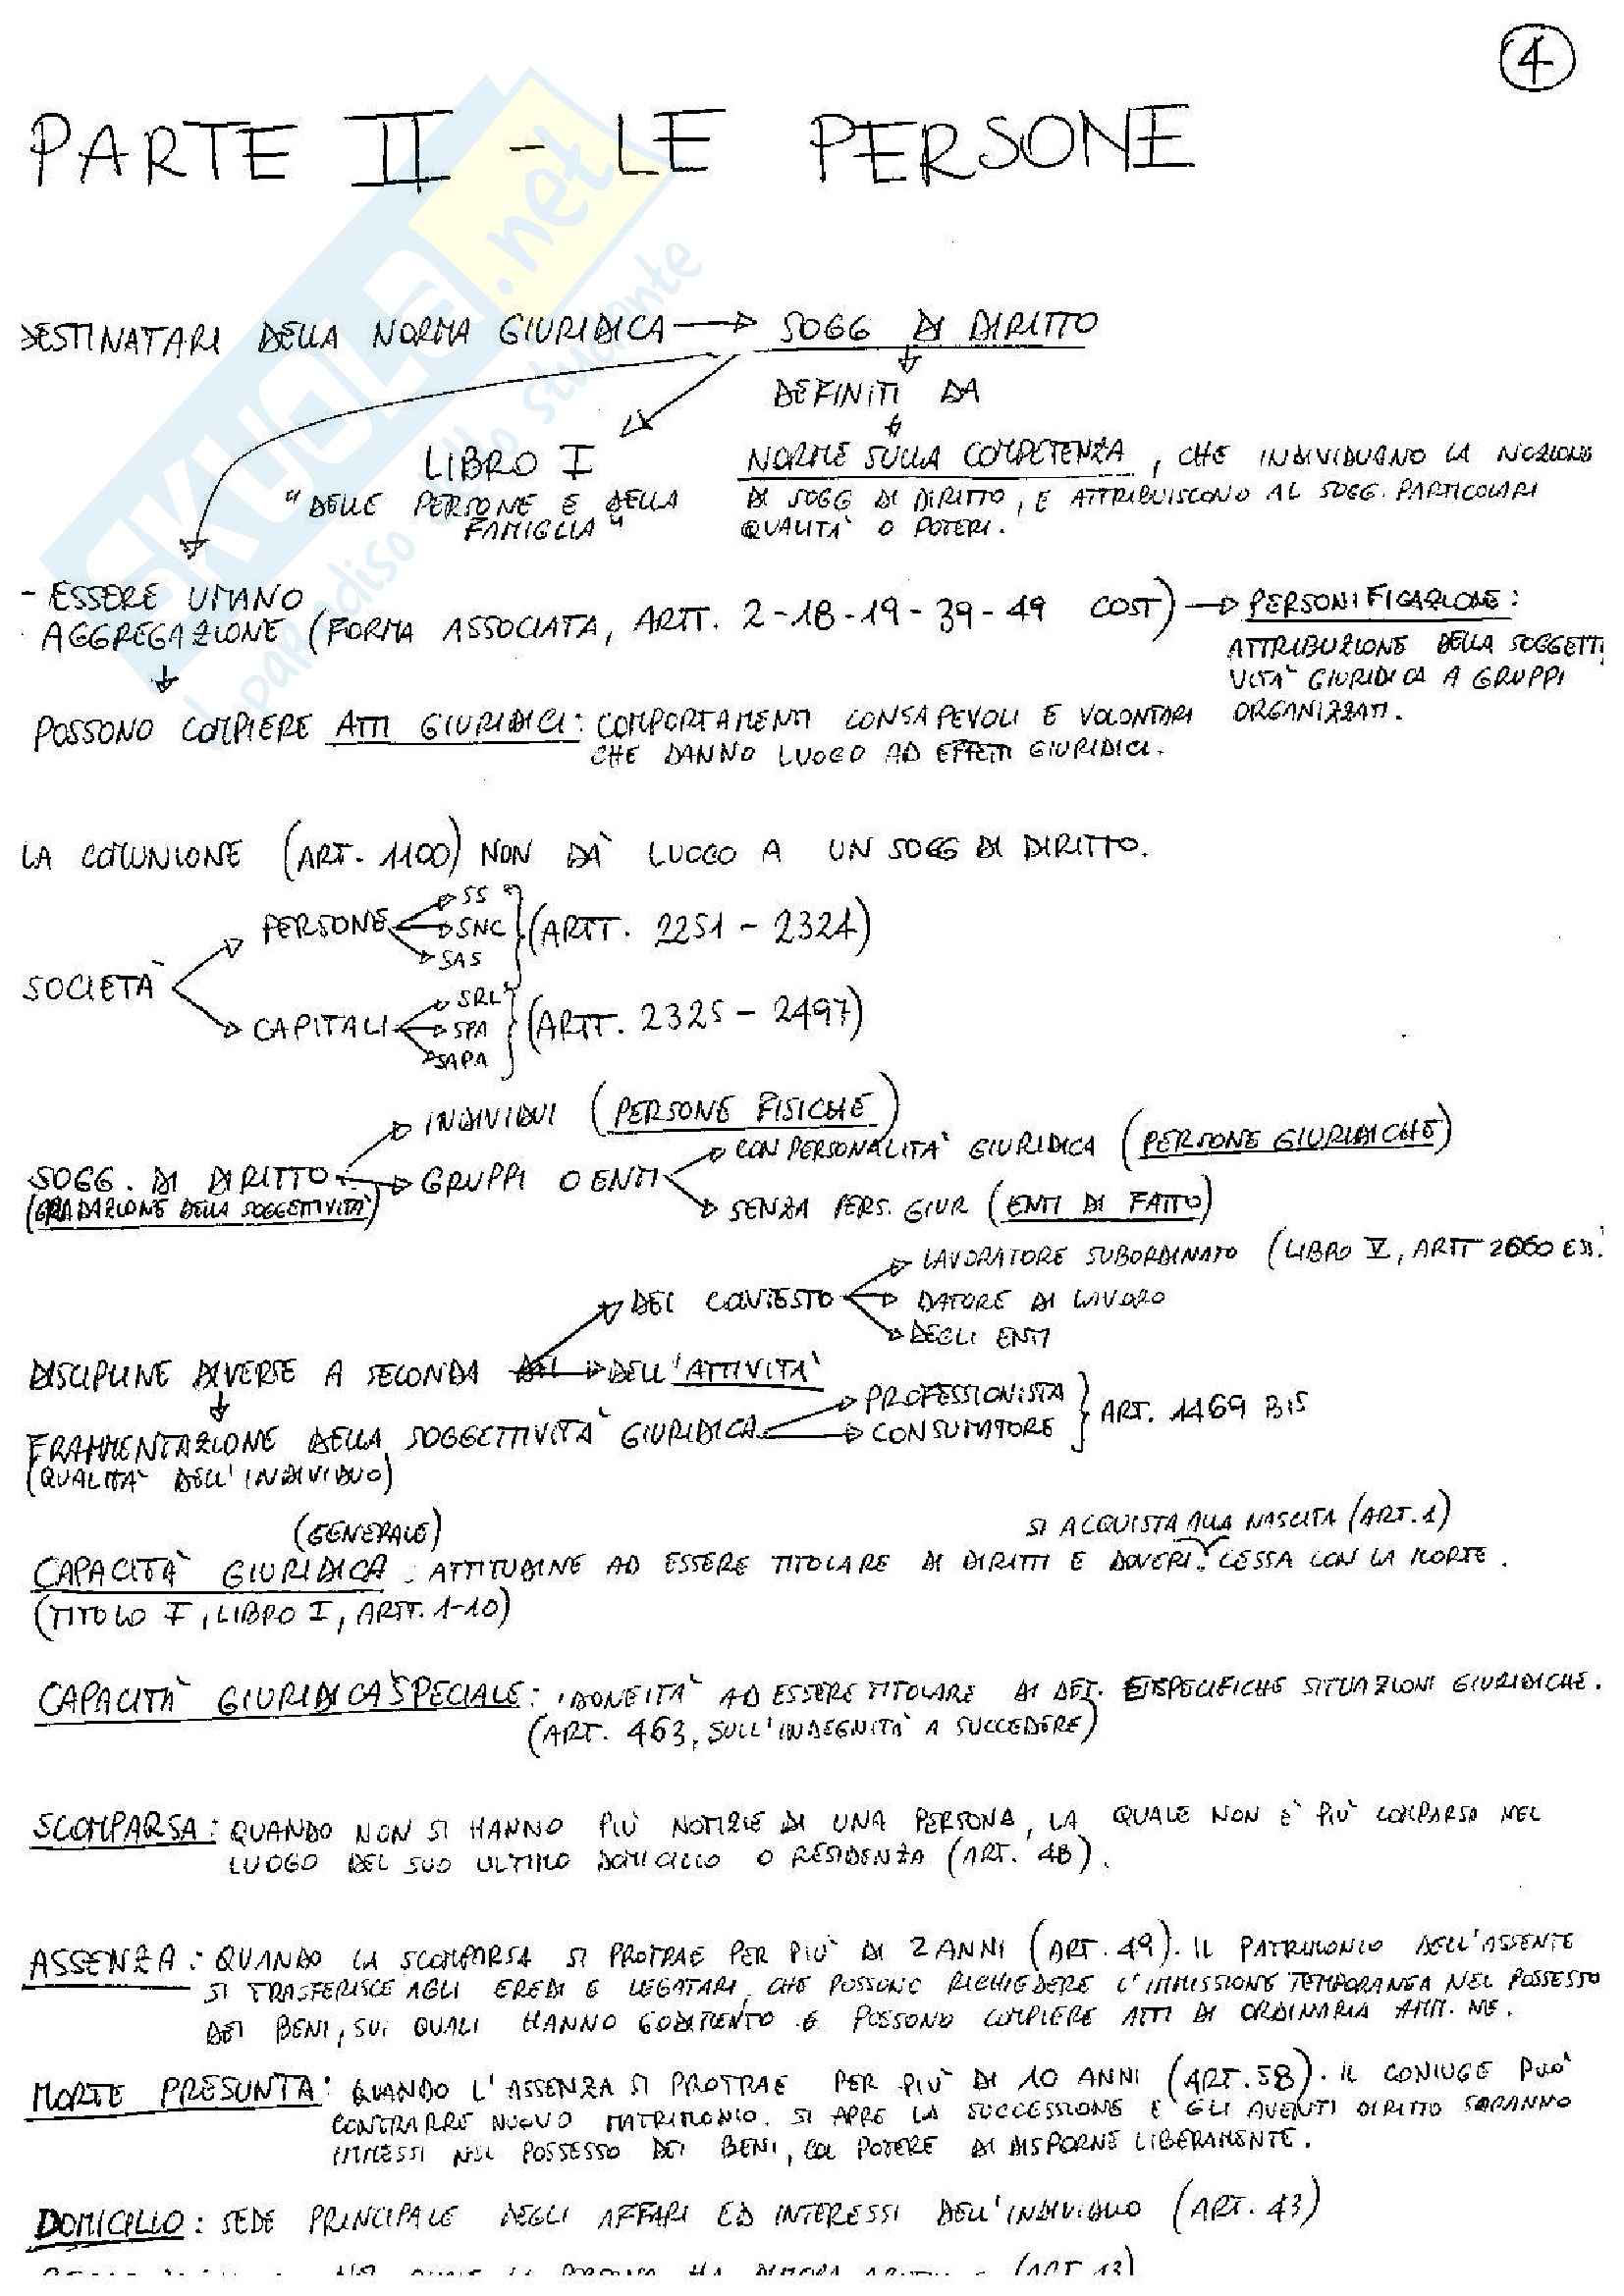 4
PARTE II - LE PERSONE
DESTINATARI DELLA NORMA GIURIDICA → SOGG DI DIRITTO
DEFINITI DA
LIBRO I
"DELLE PERSONE E DELLA
FAMIGLIA"
NORME SULLA COMPETENZA, CHE INDIVIDUANO LA NOZIONE
DI SOGG DI DIRITTO, E ATTRIBUISCONO AL SOGG. PARTICOLARI
QUALITÀ O POTERI.
- ESSERE UMANO
AGGREGAZIONE (FORMA ASSOCIATA, ARTT. 2-18-19-39-49 COST) → PERSONIFICAZIONE:
ATTRIBUZIONE DELLA SOGGETTI
VITÀ GIURIDICA A GRUPPI
ORGANIZZATI.
POSSONO COMPIERE ATTI GIURIDICI: COMPORTAMENTI CONSAPEVOLI E VOLONTARI
CHE DANNO LUOGO AD EFFETTI GIURIDICI.
LA COMUNIONE (ART. 1100) NON DÀ LUOGO A UN SOGG DI DIRITTO.
SOCIETÀ
PERSONE
SS
SNC
SAS
(ARTT. 2251 - 2324)
CAPITALI
SRL
SPA
SAPA
(ARTT. 2325 - 2497)
SOGG. DI DIRITTO
(GRADAZIONE DELLA SOGGETTIVITÀ)
INDIVIDUI (PERSONE FISICHE)
GRUPPI O ENTI
CON PERSONALITÀ GIURIDICA (PERSONE GIURIDICHE)
SENZA PERS. GIUR (ENTI DI FATTO)
DISCIPLINE DIVERSE A SECONDA
DEL CONTESTO
LAVORATORE SUBORDINATO (LIBRO V, ARTT 2060 ESS.
DATORE DI LAVORO
DEGLI ENTI
DELL'ATTIVITÀ
FRAMMENTAZIONE DELLA SOGGETTIVITÀ GIURIDICA
(QUALITÀ DELL'INDIVIDUO)
PROFESSIONISTA
CONSUMATORE
ART. 1469 BIS
(GENERALE)
SI ACQUISTA ALLA NASCITA (ART. 1)
CAPACITÀ GIURIDICA: ATTITUDINE AD ESSERE TITOLARE DI DIRITTI E DOVERI. CESSA CON LA MORTE.
(TITOLO I, LIBRO I, ARTT. 1-10)
CAPACITÀ GIURIDICA SPECIALE: IDONEITÀ AD ESSERE TITOLARE DI DET. E SPECIFICHE SITUAZIONI GIURIDICHE.
(ART. 463, SULL'INDEGNITÀ A SUCCEDERE)
SCOMPARSA: QUANDO NON SI HANNO PIÙ NOTIZIE DI UNA PERSONA, LA QUALE NON È PIÙ COMPARSA NEL
LUOGO DEL SUO ULTIMO DOMICILIO O RESIDENZA (ART. 48).
ASSENZA: QUANDO LA SCOMPARSA SI PROTRAE PER PIÙ DI 2 ANNI (ART. 49). IL PATRIMONIO DELL'ASSENTE
SI TRASFERISCE AGLI EREDI E LEGATARI, CHE POSSONO RICHIEDERE L'IMMISSIONE TEMPORANEA NEL POSSESSO
DEI BENI, SUI QUALI HANNO GODIMENTO E POSSONO COMPIERE ATTI DI ORDINARIA AMM.NE.
MORTE PRESUNTA: QUANDO L'ASSENZA SI PROTRAE PER PIÙ DI 10 ANNI (ART. 58). IL CONIUGE PUÒ
CONTRARRE NUOVO MATRIMONIO. SI APRE LA SUCCESSIONE E GLI AVENTI DIRITTO SARANNO
IMMESSI NEL POSSESSO DEI BENI, COL POTERE DI DISPORNE LIBERAMENTE.
DOMICILIO: SEDE PRINCIPALE DEGLI AFFARI ED INTERESSI DELL'INDIVIDUO (ART. 43)
SKUOLA.net
il paradiso dello studente